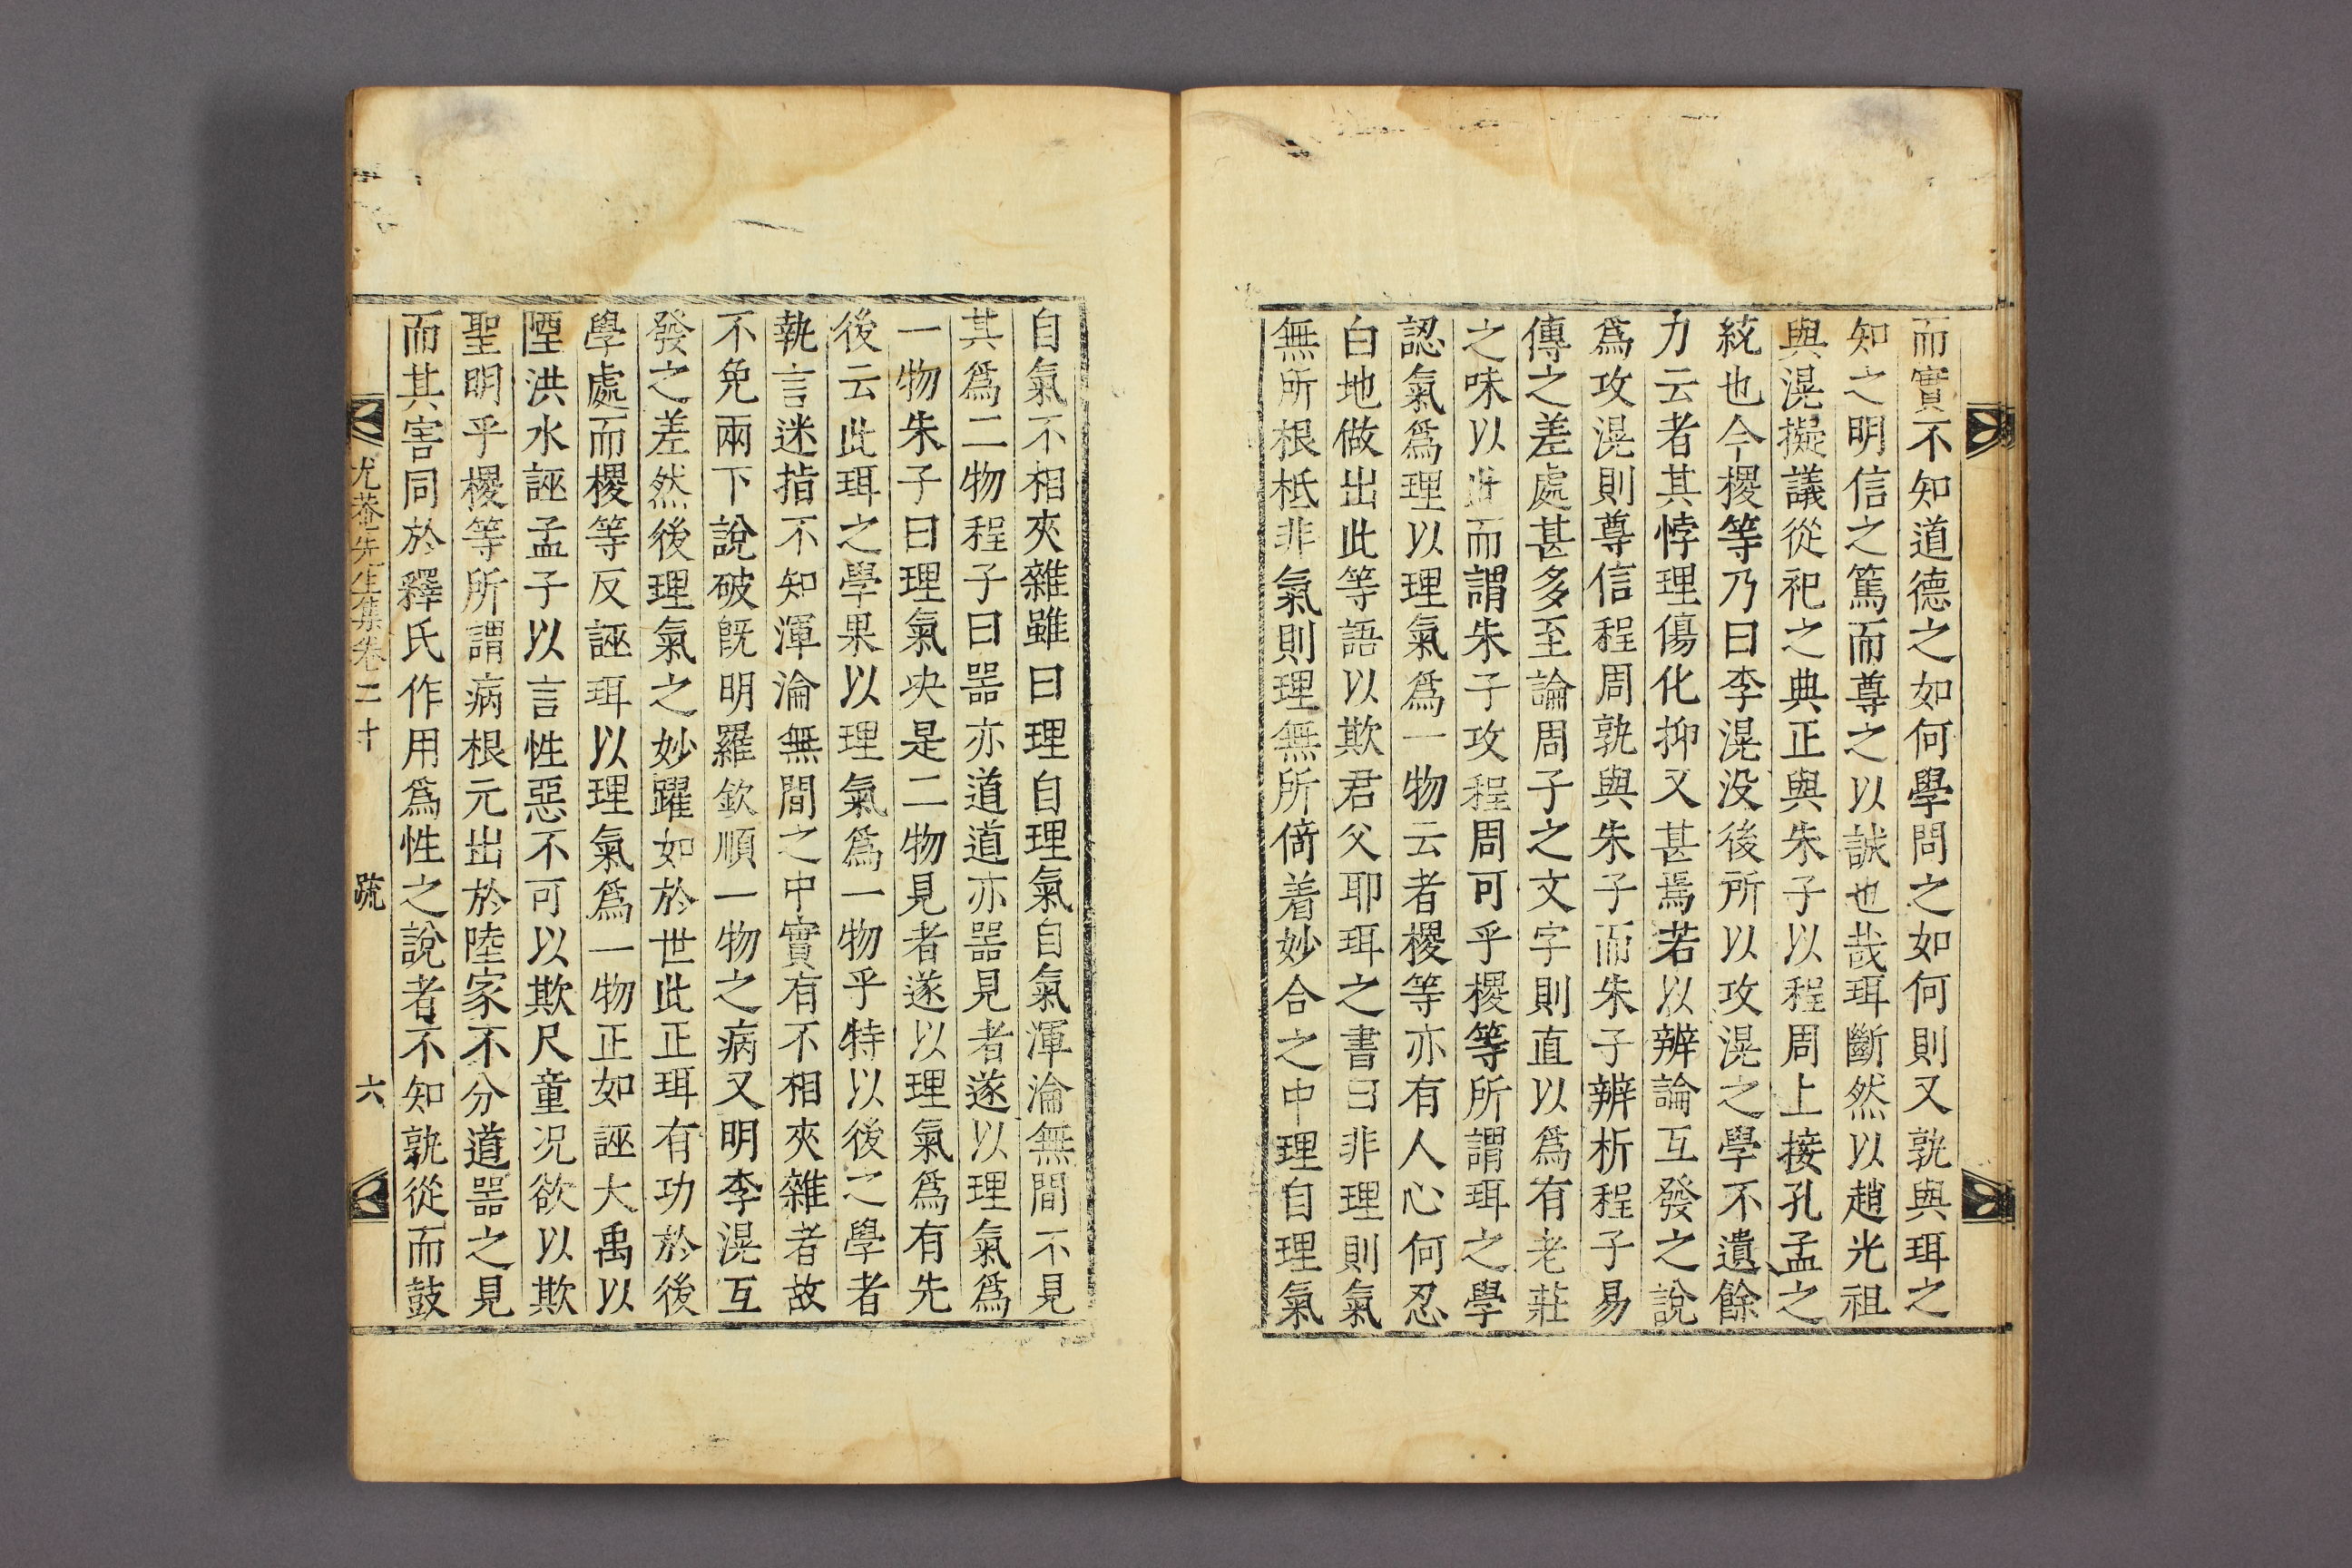 而實不知道德之如何學問之如何則又孰與珥之
知之明信之篤而尊之以誠也哉珥斷然以趙光祖
與滉擬議從祀之典正與朱子以程周上接孔孟之
統也今㮨等乃曰李滉没後所以攻滉之學不遺餘
力云者其悖理傷化抑又甚焉若以辨論互發之說
爲攻滉則尊信程周孰與朱子而朱子辨析程子易
傳之差處甚多至論周子之文字則直以爲有老莊
之味以此而謂朱子攻程周可乎㮨等所謂珥之學
認氣爲理以理氣爲一物云者㮨等亦有人心何忍
白地做出此等語以欺君父耶珥之書曰非理則氣
無所根柢非氣則理無所倚着妙合之中理自理氣
自氣不相夾雜雖曰理自理氣自氣渾淪無間不見
其爲二物程子曰器亦道道亦器見者遂以理氣爲
一物朱子曰理氣决是二物見者遂以理氣爲有先
後云此珥之學果以理氣爲一物乎特以後之學者
執言迷指不知渾淪無間之中實有不相夾雜者故
不免兩下說破旣明羅欽順一物之病又明李滉互
發之差然後理氣之妙躍如於世此正珥有功於後
學處而㮨等反誣珥以理氣爲一物正如誣大禹以
陻洪水誣孟子以言性惡不可以欺尺童况欲以欺
聖明乎㮨等所謂病根元出於陸家不分道器之見
而其害同於釋氏作用爲性之說者不知孰從而鼓
尤菴先生集卷二十 疏 六